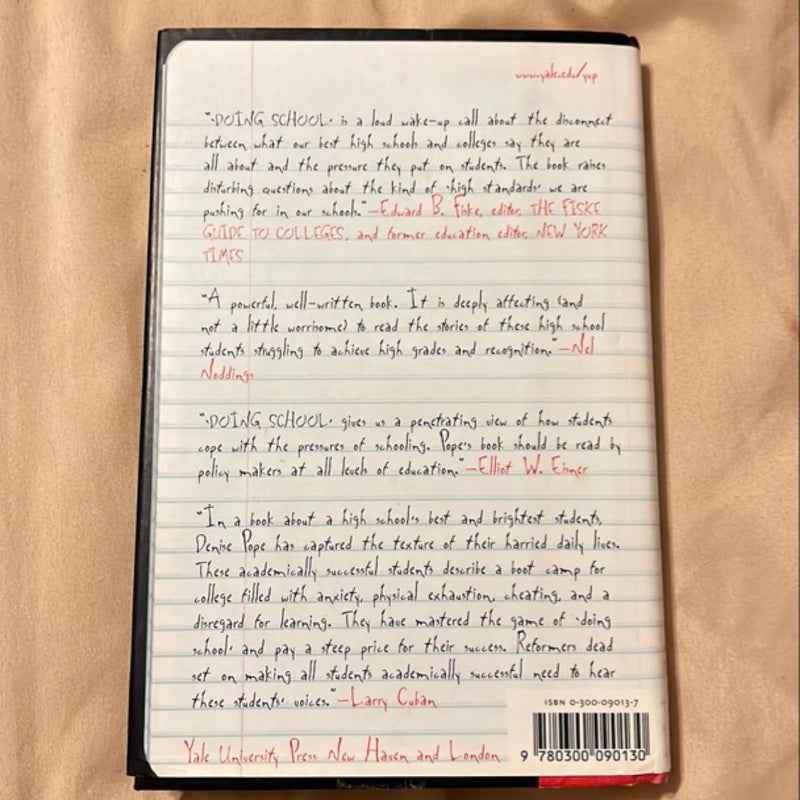 www.yale.edu/yup
"'DOING SCHOOL' is a loud wake-up call about the disconnect
between what our best high schools and colleges say they are
all about and the pressure they put on students. The book raises
disturbing questions about the kind of 'high standards' we are
pushing for in our schools."—Edward B. Fiske, editor, THE FISKE
GUIDE TO COLLEGES, and former education editor, NEW YORK
TIMES
"A powerful, well-written book. It is deeply affecting (and
not a little worrisome) to read the stories of these high school
students struggling to achieve high grades and recognition."—Nel
Noddings
"'DOING SCHOOL' gives us a penetrating view of how students
cope with the pressures of schooling. Pope's book should be read by
policy makers at all levels of education."—Elliot W. Eisner
"In a book about a high school's best and brightest students,
Denise Pope has captured the texture of their harried daily lives.
These academically successful students describe a boot camp for
college filled with anxiety, physical exhaustion, cheating, and a
disregard for learning. They have mastered the game of 'doing
school' and pay a steep price for their success. Reformers dead
set on making all students academically successful need to hear
these students' voices."—Larry Cuban
ISBN 0-300-09013-7
Yale University Press New Haven and London
9 780300 090130